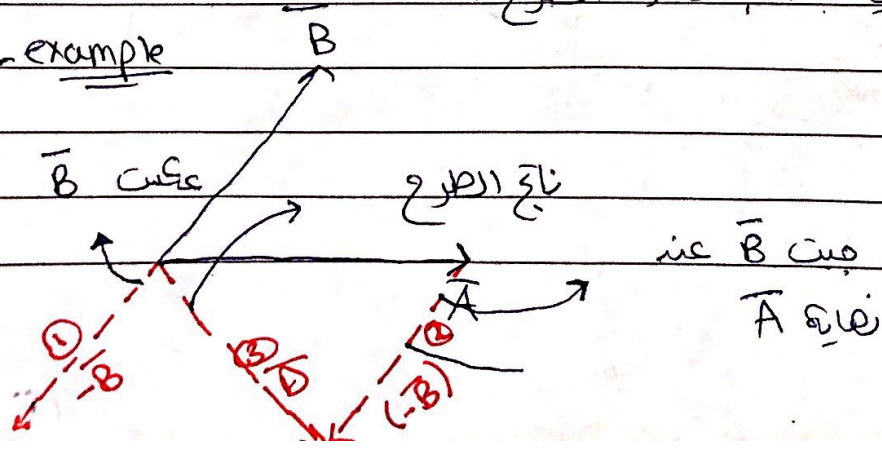 example
B̅
عكست B̅
ناتج الطرح
جبت B̅ عند
نهاية A̅
A̅
①
-B̅
②
(-B̅)
③